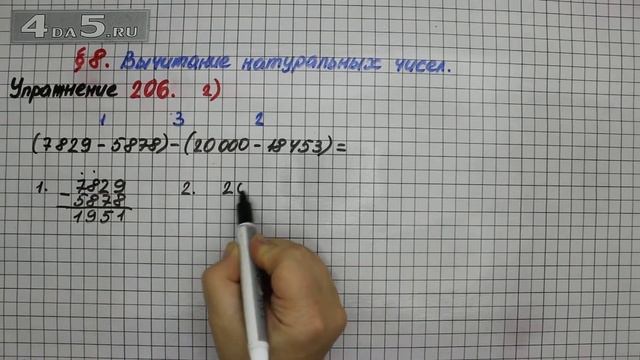 4DA5.RU
§8. Вычитание натуральных чисел.
Упражнение 206. г)
1 3 2
(7829-5878)-(20000-18453)=
1. 7829 2. 20
- 5878
1951